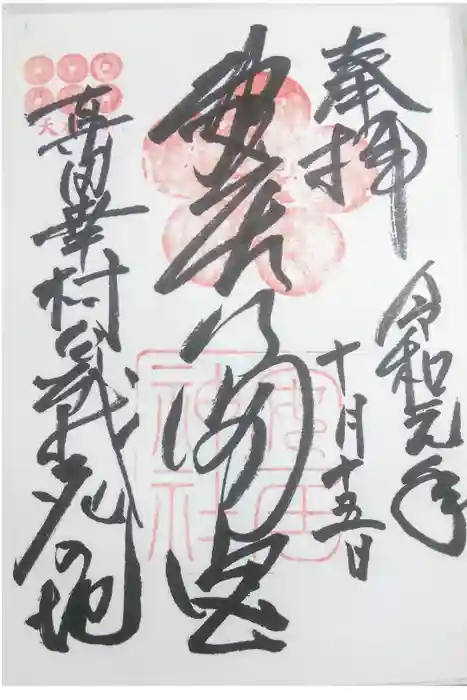 奉拝
令和元年
十月十五日
安居天満宮
真田幸村公戦死の地
安居
神社